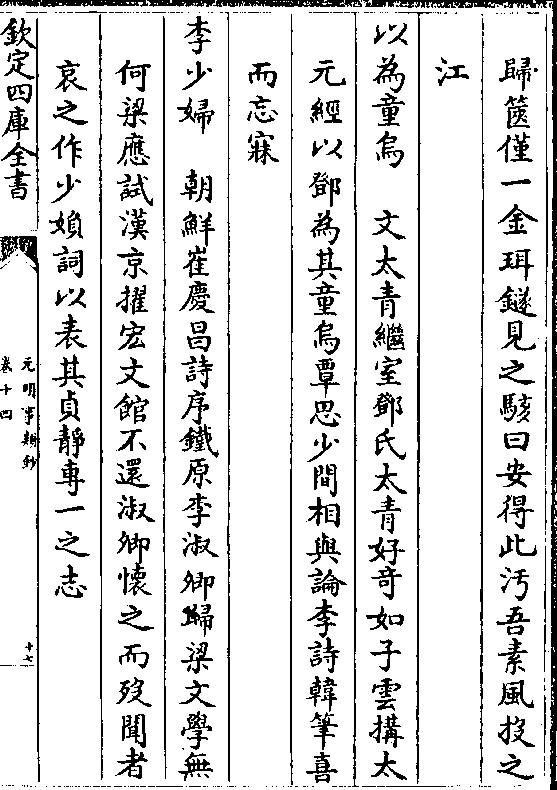 歸篋僅一金珥鐩見之駭曰安得此汚吾素風投之
江
以為童烏　文太青繼室鄧氏太青好奇如子雲搆太
元經以鄧為其童烏覃思少間相與論李詩韓筆喜
而忘寐
李少婦　朝鮮崔慶昌詩序鐵原李淑卿歸梁文學無
何梁應試漢京擢宏文館不還淑卿懷之而歿聞者
哀之作少媍詞以表其貞靜專一之志
欽定四庫全書
元明事類鈔
卷十四
十七